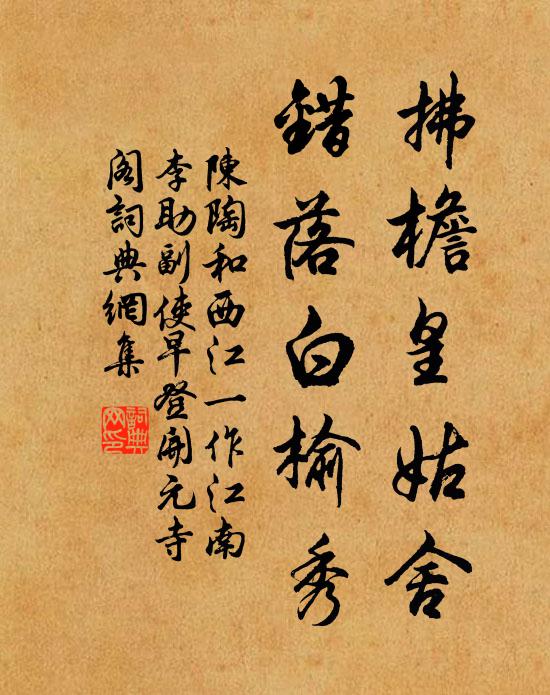 拂檐皇姑舍
錯落白榆秀
陳陶和西江一作江南
李助副使早登開元寺
閣詞典網集
詞典网印